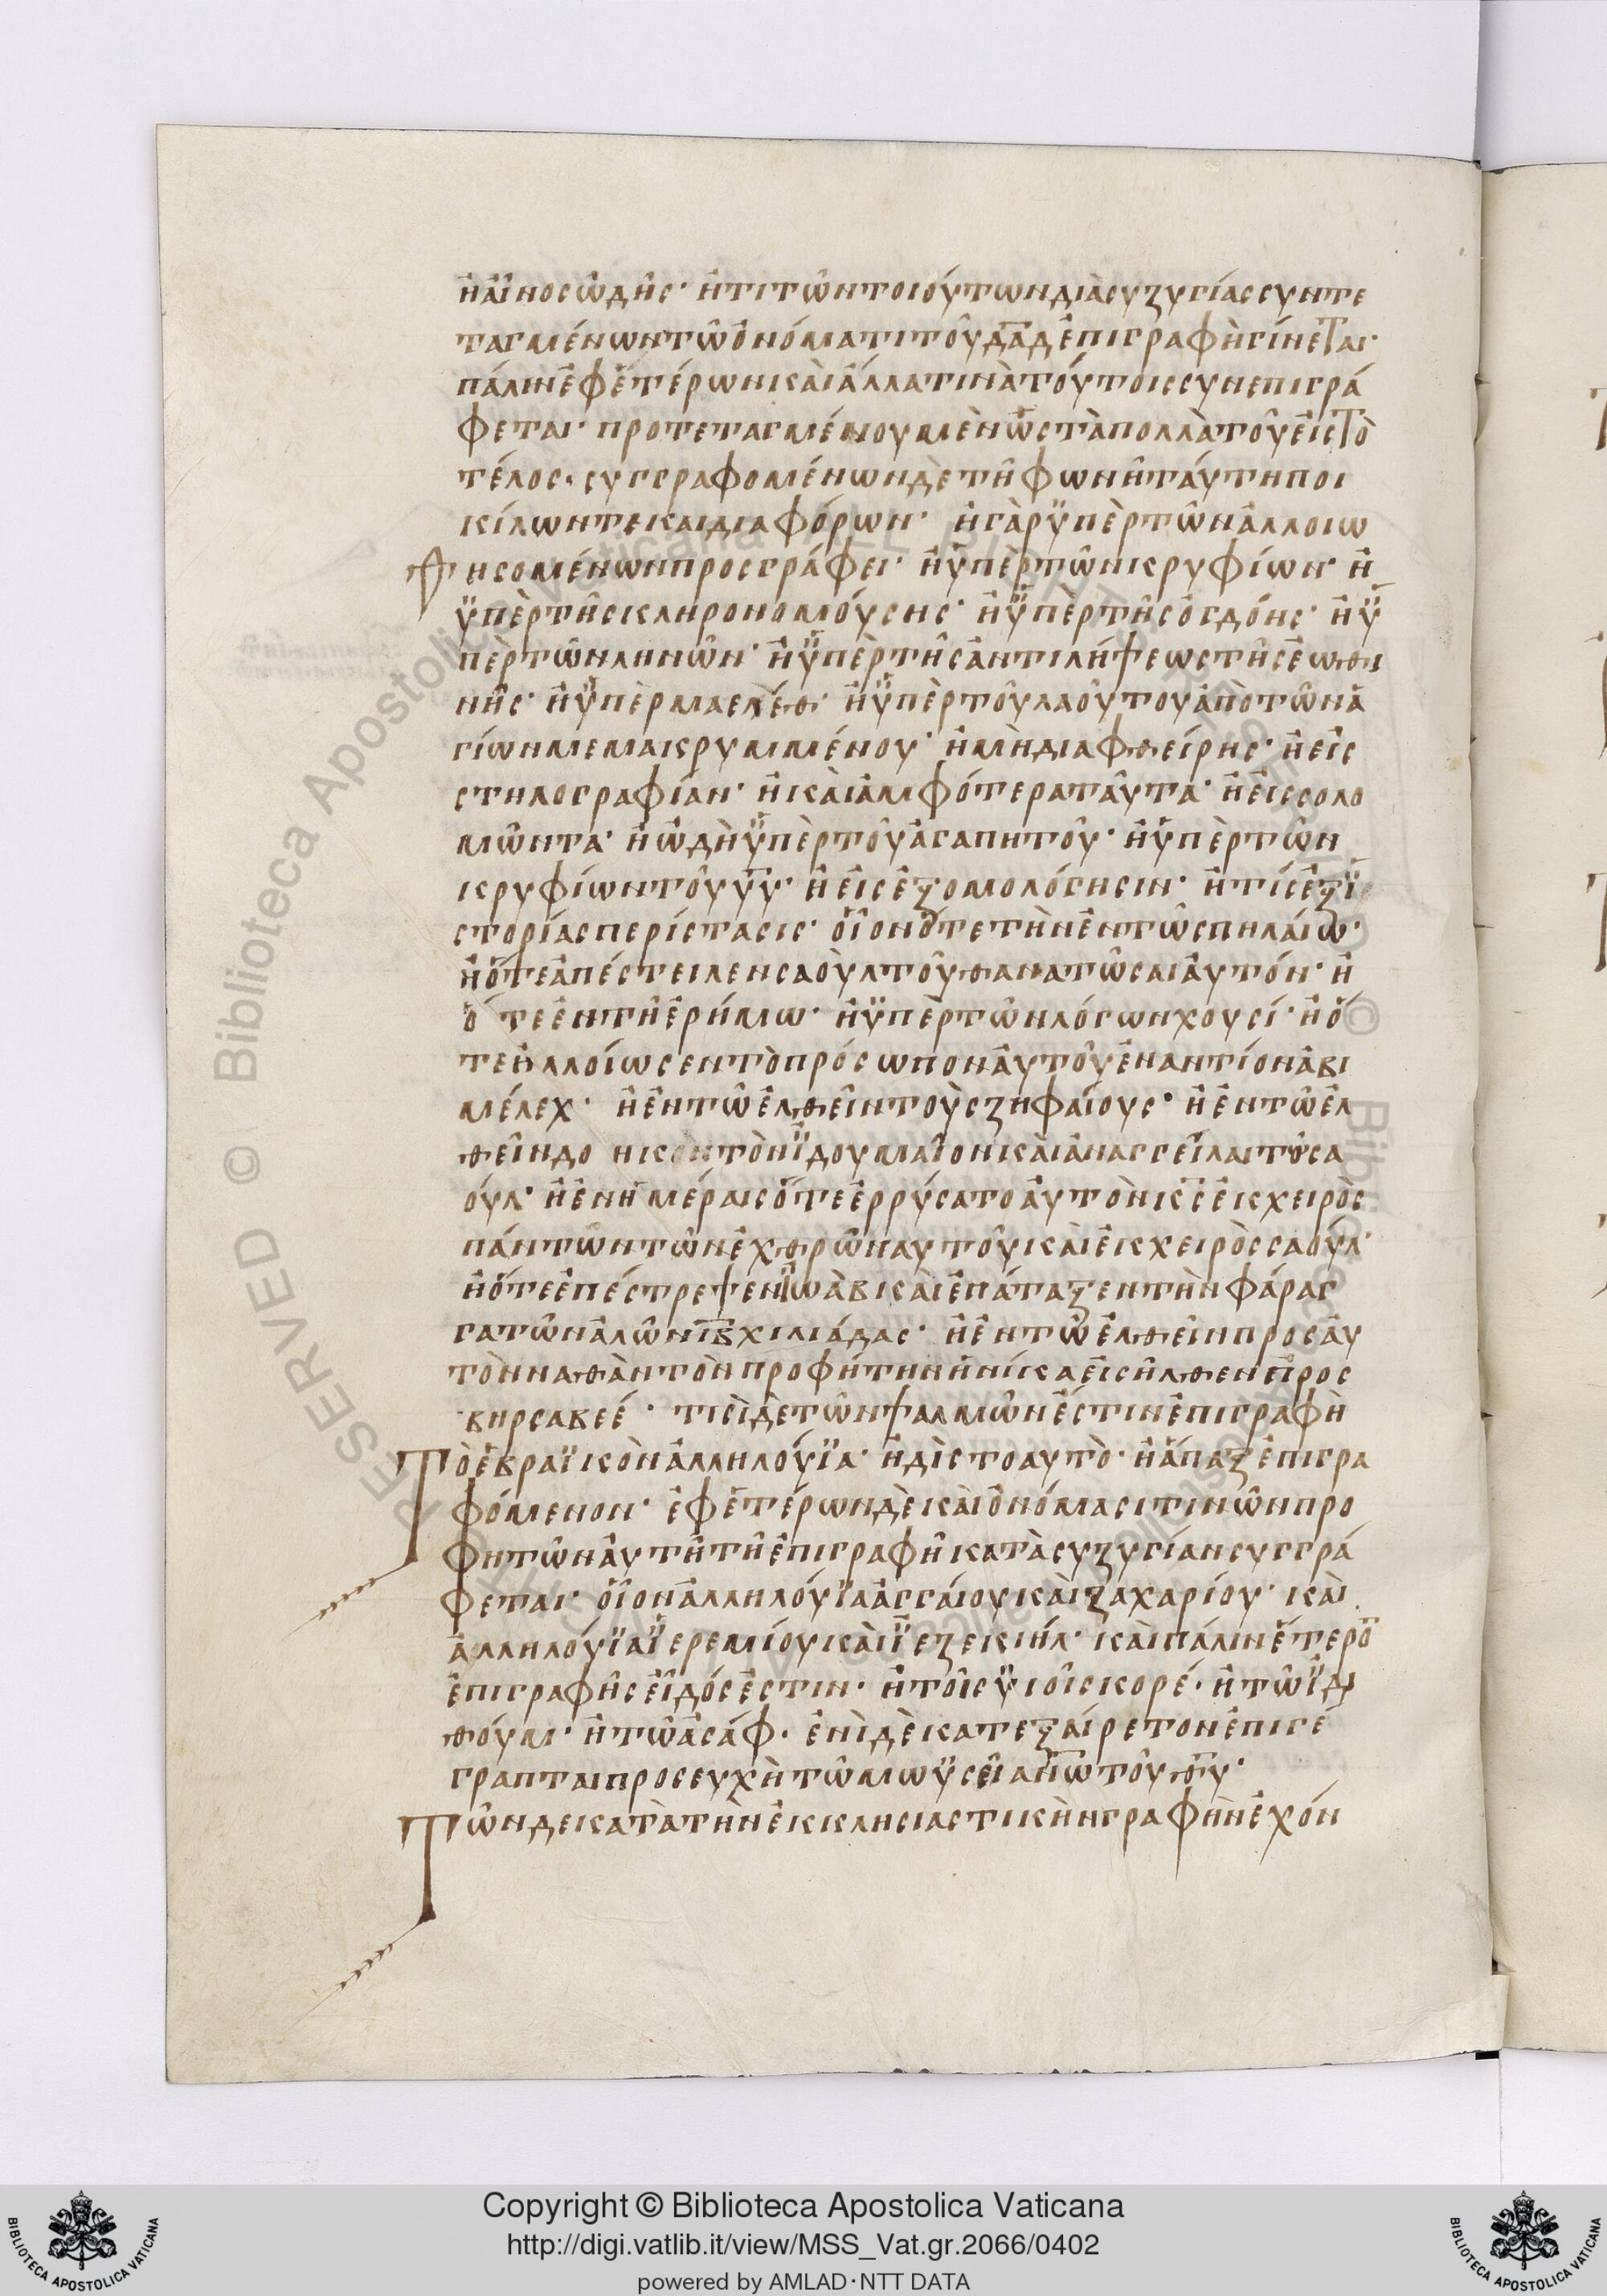 ἢ αἶνος ὠδῆς· ἤ τι τῶν τοιούτων διὰ συζυγίας συντε
ταγμένων τῶ ὀνόματι τοῦ δαδ ἐπιγραφὴ γίνεται·
πάλιν ἐφ ἑτέρων καὶ ἄλλα τινὰ τούτοις συνεπιγρά
φεται· προτεταγμένου μὲν ὡς τὰ πολλὰ τοῦ εἰς τὸ
τέλος· συγγραφομένων δὲ τῆ φωνῆ ταύτη ποι
κίλων τε καὶ διαφόρων· ἢ γὰρ ὑπὲρ τῶν ἀλλοιω
θησομένων προσγράφει· ἢ ὑπὲρ τῶν κρυφίων· ἢ
ὑπὲρ τῆς κληρονομούσης· ἢ ὑπὲρ τῆς ὀγδόης· ἢ ὑ
πὲρ τῶν ληνῶν· ἢ ὑπὲρ τῆς ἀντιλήψεως τῆς ἑωθι
νῆς· ἢ ὑπὲρ μαελέθ· ἢ ὑπὲρ τοῦ λαοῦ του ἀπὸ τῶν ἁ
γίων μεμακρυμμένου· ἢ μὴ διαφθείρης· ἢ εἰς
στηλογραφίαν· ἢ καὶ ἀμφότερα ταῦτα· ἢ εἰς σολο
μῶντα· ἢ ὠδὴ ὑπὲρ τοῦ ἀγαπητοῦ· ἢ ὑπὲρ τῶν
κρυφίων τοῦ υυ· ἢ εἰς ἐξομολόγησιν· ἤ τίς ἐξ ἱ
στορίας περίστασις· οἷον ὅτε τὴν ἐν τῶ σπηλαίω·
ἢ ὅτε ἀπέστειλεν σαοὺλ τοῦ θανατῶσαι αὐτόν· ἢ
ὅτε ἐν τῆ ἐρήμω· ἢ ὑπὲρ τῶν λόγων χουσί· ἢ ὅ
τε ἠλλοίωσεν τὸ πρόσωπον αὐτοῦ ἐναντίον ἀβι
μέλεχ· ἢ ἐν τῶ ἐλθεῖν τοὺς ζηφαίους· ἢ ἐν τῶ ἐλ
θεῖν δο ηκ τὸν ἰδουμαῖον καὶ ἀναγγεῖλαι τῶ σα
ούλ· ἢ ἐν ἡμέραις ὅτε ἐρρύσατο αὐτὸν κς ἐκ χειρὸς
πάντων τῶν ἐχθρῶν αυτοῦ καὶ ἐκ χειρὸς σαούλ·
ἢ ὅτε ἐπέστρεψεν ἰωὰβ καὶ ἐπάταξεν τὴν φάραγ
γα τῶν ἁλῶν ιβ χιλιάδας· ἢ ἐν τῶ ἐλθεῖν προς αὐ
τὸν ναθὰν τὸν προφήτην ἡνίκα εἰσῆλθεν προς
βηρσαβεέ· τισὶ δὲ τῶν ψαλμῶν ἐστὶν ἐπιγραφὴ
Τὸ ἑβραϊκὸν ἀλληλούϊα· ἢ δὶς το αυτὸ· ἢ ἅπαξ ἐπιγρα
φόμενον· ἐφ ἑτέρων δὲ καὶ ὀνόμασι τινῶν προ
φητῶν αὐτῆ τῆ ἐπιγραφῆ κατὰ συζυγίαν συγγρά
φεται· οἷον ἀλληλούϊα ἀγγαίου καὶ ζαχαρίου· καὶ
ἀλληλούϊα ἱερεμίου καὶ ἱεζεκιήλ· καὶ πάλιν ἕτερο
ἐπιγραφῆς εἶδός ἐστιν· ἢ τοῖς υἱοῖς κορέ· ἢ τῶ ἰδι
θούμ· ἢ τῶ ἀσάφ· ἑνὶ δὲ κατεξαίρετον ἐπιγέ
γραπται προσευχὴ τῶ μωϋσεῖ ανω τοῦ θυ·
Τῶν δε κατὰ τὴν ἐκκλησιαστικὴν γραφὴν ἐχόν
Copyright © Biblioteca Apostolica Vaticana
http://digi.vatlib.it/view/MSS_Vat.gr.2066/0402
powered by AMLAD·NTT DATA